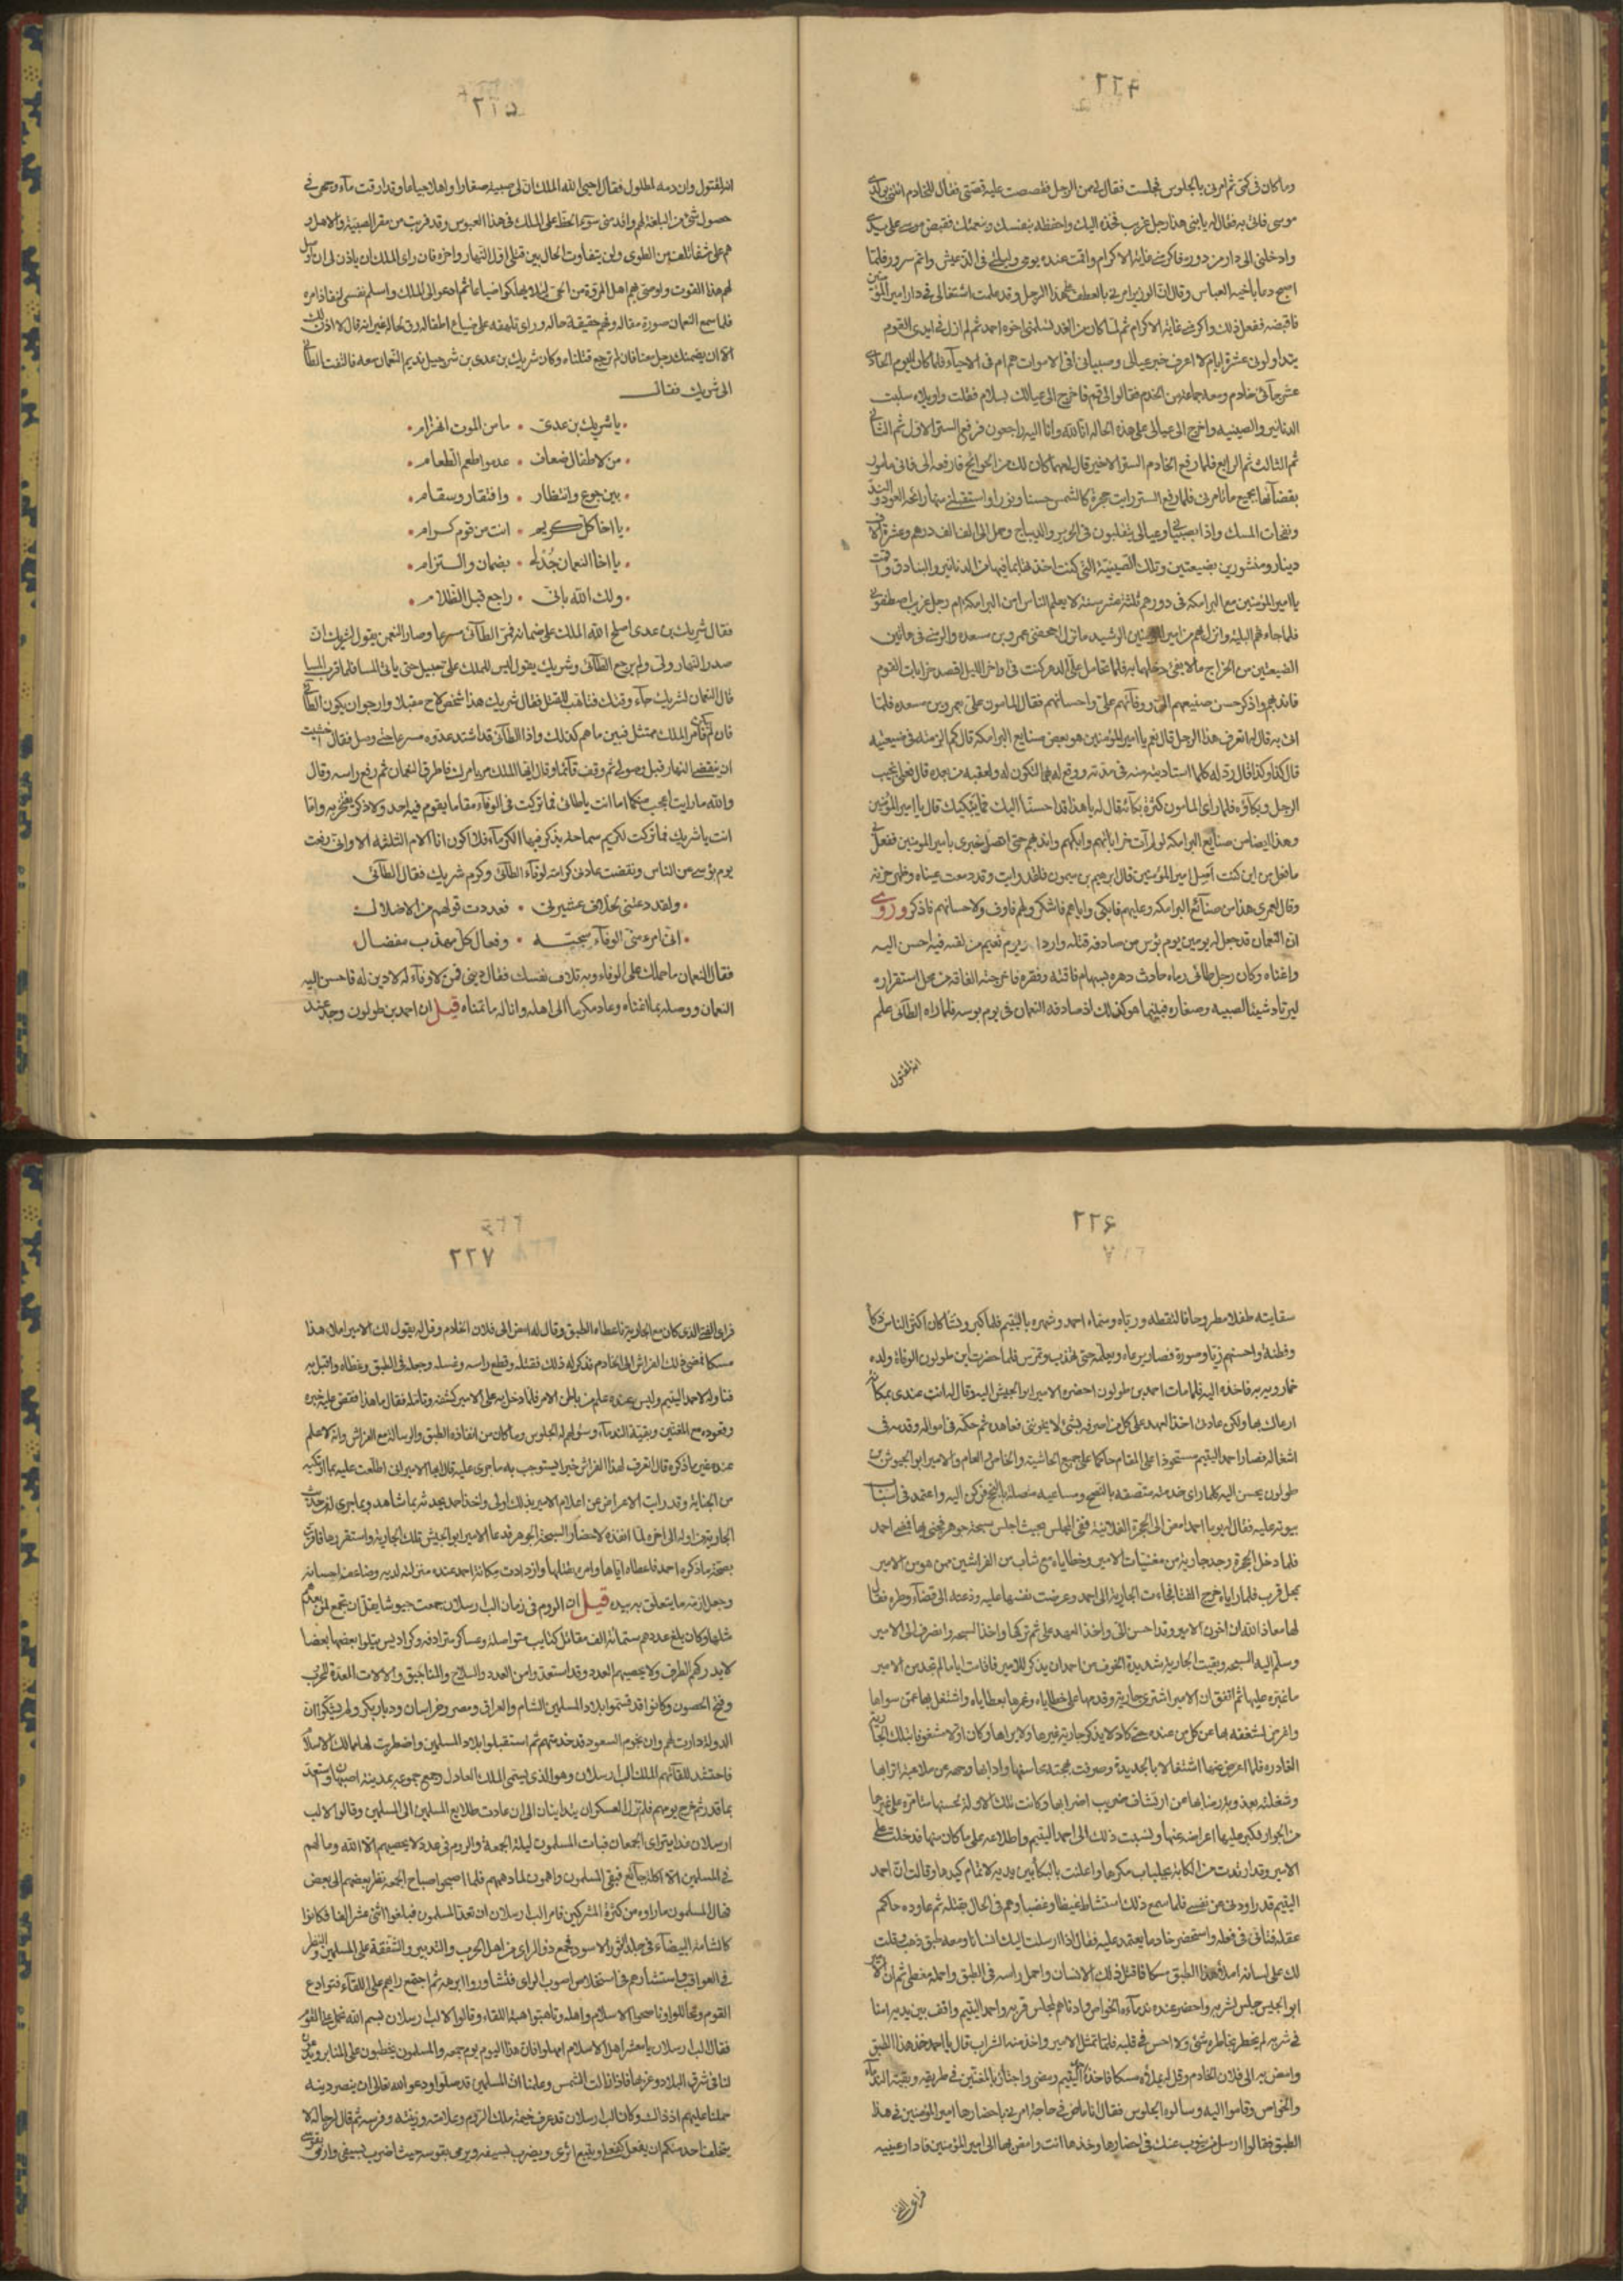 ٢٢٤
وما كان في كمي ثم امرني بالجلوس فجلست فقال لي من الرجل فقصصت عليه قصتي فقال للخادم ائتني بولدي
موسى فاتى به فقال له يا بني هذا رجل غريب فخذه اليك واحفظه بنفسك وبنعمتك فقبض موسى على يدي
وادخلني الى دار من دوره فاكرمني غاية الاكرام واقمت عنده يومي وليلتي في الذ عيش واتم سرور فلما
اصبح دعا باخيه العباس وقال ان الوزير امرني بالعطف على هذا الرجل وقد علمت اشتغالي في دار امير المؤمنين
فاقبضه ففعل ذلك واكرمني غاية الاكرام ثم لما كان من الغد تسلمني اخوه احمد ثم لم ازل في ايدي القوم
يتداولوني عشرة ايام لا اعرف خبر عيالي وصبياني افي الاموات هم ام في الاحياء فلما كان اليوم الحادي
عشر جاءني خادم ومعه جماعة من الخدم فقالوا لي قم فاخرج الى عيالك بسلام فقلت واويلاه سلبت
الدنانير والصينيه واخرج الى عيالي على هذه الحاله انا لله وانا اليه راجعون فرفع الستر الاول ثم الثاني
ثم الثالث ثم الرابع فلما رفع الخادم الستر الاخير قال لي مهما كان لك من الحوائج فارفعه الي فاني مامور
بقضاء جميع ما تامرني فلما رفع الستر رايت حجرة كالشمس حسنا ونورا واستقبلني منها رائحة العود والند
ونفحات المسك واذا بصبياني وعيالي يتقلبون في الحرير والديباج وحمل الي الف الف درهم وعشرة الاف
دينار ومنشورين بضيعتين وتلك الصينية التي كنت اخذتها بما فيها من الدنانير والبنادق واقمت
يا امير المؤمنين مع البرامكه في دورهم ثلثة عشر سنة لا يعلم الناس امن البرامكة ام رجل غريب اصطفوني
فلما جاءهم البلية ونزل بهم من امير المؤمنين الرشيد ما نزل اجحفني عمرو بن مسعده والزمني في هاتين
الضيعتين من الخراج ما لا يفي دخلهما به فلما تحامل علي الدهر كنت في اواخر الليل اقصد خرابات القوم
فاندبهم واذكر حسن صنيعهم الي ووفائهم علي واحسانهم فقال المامون علي بعمرو بن مسعده فلما
اتى به قال له اتعرف هذا الرجل قال نعم يا امير المؤمنين هو بعض صنايع البرامكه قال كم الزمته في ضيعتيه
قال كذا وكذا فقال رد له كلما استاديته منه في مدته ووقع له بهما لتكون له ولعقبه من بعده قال فعلى نحيب
الرجل وبكاؤه فلما راى المامون كثرة بكائه قال له يا هذا قد احسنا اليك فما يبكيك قال يا امير المؤمنين
وهذا ايضا من صنايع البرامكه لو لم آت خراباتهم وابكيهم واندبهم حتى اتصل خبري بامير المومنين ففعل بي
ما فعل من اين كنت اصل امير المؤمنين قال ابرهيم بن ميمون فلقد رايت وقد دمعت عيناه وظهر حزنه
وقال لعمري هذا من صنائع البرامكه وعليهم فابكي واياهم فاشكر ولهم فاوف ولاحسانهم فاذكر وروي
ان النعمان قد جعل له يومين يوم بؤس من صادفه قتله واردا ويوم نعيم من لقيه فيه احسن اليه
واغناه وكان رجل طائي رماه حادث دهره بسهام فاقته وفقره فاخرجته الفاقه من محل استقراره
ليرتاد شيئا لصبيه وصغاره فبينما هو كذلك اذ صادفه النعمان في يوم بوسه فلما راه الطائي علم
انه لمقتول
٢٢٥
انه لمقتول وان دمه لمطلول فقال احيى الله الملك ان لي صبية صغارا واهلا جياعا وقد ارقت ماء وجهي في
حصول شئ من البلغة لهم واقدمني سوء الحظ على الملك في هذا العبوس وقد قربت من مقر الصبيه والاهل و
هم على شفا تلف من الطوى ولن يتفاوت الحال بين قتلي اول النهار واخره فان راى الملك ان ياذن لي ان اوصل
لهم هذا القوت واوصي بهم اهل المروة من الحي لئلا يهلكوا ضياعا ثم اعود الى الملك واسلم نفسي لنفاذ امره
فلما سمع النعمان صورة مقاله وفهم حقيقة حاله وراى تلهفه على ضياع اطفاله رق لحاله غير انه قال لا اذن لك
الا ان يضمنك رجل معنا فان لم ترجع قتلناه وكان شريك بن عدي بن شرحبيل نديم النعمان معه فالتفت الطائي
الى شريك فقال
يا شريك بن عدي • ما من الموت انهزام
من لاطفال ضعاف • عدموا طعم الطعام
بين جوع وانتظار • وافتقار وسقام
يا اخا كل كريم • انت من قوم كرام
يا اخا النعمان جد له • بضمان والتزام
ولك الله باني • راجع قبل الظلام
فقال شريك بن عدي اصلح الله الملك علي ضمانه فمر الطائي مسرعا وصار النعمن يقول لشريك ان
صدر النهار ولى ولم يرجع الطائي وشريك يقول ليس للملك علي سبيل حتى ياتي المسا فلما قرب المسا
قال النعمان لشريك جاء وقتك فتاهب للقتل فقال شريك هذا شخص لاح مقبلا وارجو ان يكون الطائي
فان لم يكن فامر الملك ممتثل فبين ما هم كذلك واذا الطائي قد اشتد عدوه مسرعا حتى وصل فقال خشيت
ان ينقضي النهار قبل وصولي ثم وقف قائما وقال ايها الملك مر بامرك فاطرق النعمان ثم رفع راسه وقال
والله ما رايت اعجب منكما اما انت يا طائي فما تركت في الوفاء مقاما يقوم فيه احد ولا ذكرى يفتخر به واما
انت يا شريك فما تركت لكريم سماحة يذكر فيها الكرماء فلا اكون انا الام الثلثه الا واني رفعت
يوم بؤسي عن الناس ونقضت عادتي كرامة لوفاء الطائي وكرم شريك فقال الطائي
ولقد دعتني لخلاف عشيرتي • فعددت قولهم من الاضلال
اني امرء مني الوفاء سجيته • وفعال كل مهذب مفضال
فقال النعمان ما حملك على الوفاء وبه تلاف نفسك فقال ديني فمن لا وفاء له لا دين له فاحسن اليه
النعمان ووصله بما اغناه وعاد مكرما الى اهله وانا له ما تمناه قيل ان احمد بن طولون وجد عند
٢٢٦
سقايته طفلا مطروحا فالتقطه ورباه وسماه احمد وشهره باليتيم فلما كبر ونشا كان اكثر الناس ذكاء
وفطنة واحسنهم زيا وصورة فصار يرعاه ويعلمه حتى تهذب وتمرس فلما حضرت ابن طولون الوفاة ولده
خمارويه به فاخذه اليه فلما مات احمد بن طولون احضره الامير ابو الجيش اليه وقال له انت عندي بمكانة
ارعاك بها ولكن عادتي اخذ العهد على كل من اصرفه بشئ لا يخونني فعاهده ثم حكمه في امواله وقدمه في
اشغاله فصار احمد اليتيم مستحوذا على المقام حاكما على جميع الحاشية والخاص والعام والامير ابو الجيوش بن
طولون يحسن اليه كلما راى خدمته متصفه بالنصح ومساعيه متصلة بالنجح فركن اليه واعتمد في اسباب
بيوته عليه فقال له يوما يا احمد امض الى الحجرة الفلانية ففي المجلس بحيث اجلس سبحة جوهر فجئني بها فمضى احمد
فلما دخل الحجرة وجد جارية من مغنيات الامير وحظاياه مع شاب من الفراشين ممن هو من الامير
بمحل قرب فلما راياه خرج الفتى فجاءت الجارية الى احمد وعرضت نفسها عليه ودعته الى قضاء وطره فقال
لها معاذ الله ان اخون الامير وقد احسن الي واخذ العهد علي ثم تركها واخذ السبحه وانصرف الى الامير
وسلم اليه السبحه وبقيت الجارية شديدة الخوف من احمد ان يذكر للامير فاقامت اياما لم تجد من الامير
ما غيره عليها ثم اتفق ان الامير اشترى جارية وقدمها على حظاياه وغمرها بعطاياه واشتغل بها عمن سواها
واعرض لشغفه بها عن كل من عنده حتى كاد لا يذكر جارية غيرها ولا يراها وكان اولا مشغوفا بتلك الجارية
الغادره فلما اعرض عنها اشتغالا بالجديدة وصرفت محبته محاسنها وادابها ودعته عن ملاعبة اترابها
وشغلته بعذوبة رضابها عن ارتشاف ضريب اضرابها وكانت تلك الاولة لحسنها متامره على غيرها
من الجوار فكبر عليها اعراضه عنها ونسبت ذلك الى احمد اليتيم واطلاعه على ما كان منها فدخلت على
الامير وقد ارتدت من الكابة بجلباب مكرها واعلنت بالبكا بين يديه لاتمام كيدها وقالت ان احمد
اليتيم قد راودني عن نفسي فلما سمع ذلك استشاط غيظا وغضبا وهم في الحال بقتله ثم عاوده حاكم
عقله فتانى في فعله واستحضر خادما يعتمد عليه فقال اذا ارسلت اليك انسانا ومعه طبق ذهب وقلت
لك على لسانه املا هذا الطبق مسكا فاقتل ذلك الانسان واجعل راسه في الطبق واحمله مغطى ثم ان الامير
ابو الجيش جلس لشربه واحضر عنده ندماءه الخواص وادناهم لمجلس قربه واحمد اليتيم واقف بين يديه امنا
في سربه لم يخطر بخاطره شئ ولا احس في قلبه فلما تمثل الامير واخذ منه الشراب قال يا احمد خذ هذا الطبق
وامض به الى فلان الخادم وقل له يملأه مسكا فاخذه اليتيم ومضى واجتاز بالمغنين في طريقه وبقية الندماء
والخواص وقاموا اليه وسالوه الجلوس فقال انا ماض في حاجة امرني باحضارها امير المؤمنين في هذا
الطبق فقالوا ارسل من ينوب عنك في احضارها وخذها انت وامض بها الى امير المؤمنين فادار عينيه
فراى الفتى
٢٢٧
فراى الفتى الذي كان مع الجارية فاعطاه الطبق وقال له امض الى فلان الخادم وقل له يقول لك الامير املا هذا
مسكا فمضى ذلك الفراش الى الخادم فذكر له ذلك فقتله وقطع راسه وغسله وجعله في الطبق وغطاه واقبل به
فناوله لاحمد اليتيم وليس عنده علم من باطن الامر فلما دخل به على الامير كشفه وتامله فقال ما هذا فقص عليه خبره
وقعوده مع المغنين وبقية الندماء وسؤالهم له الجلوس وما كان من انفاذه الطبق والرسالة مع الفراش وانه لا علم
عنده غير ما ذكره قال اتعرف لهذا الفراش خبرا يستوجب به ما جرى عليه قال ايها الامير اني اطلعت عليه بما ارتكبه
من الجناية وقد رايت الاعراض عن اعلام الامير بذلك اولى واخذ احمد يحدثه بما شاهد وبما جرى له من حديث
الجارية من اوله الى اخره لما انفذه لاحضار السبحة الجوهر فدعا الامير ابو الجيش تلك الجارية واستقررها فاقرت
بصحة ما ذكره احمد فاعطاه اياها وامره بقتلها وازدادت مكانة احمد عنده منزلة لديه وضاعف احسانه
وجعل ازمة ما يتعلق به بيده قيل ان الروم في زمان الب ارسلان جمعت جيوشا يقل ان تجمع لمن بعدهم
مثلها وكان بلغ عددهم ستمائة الف مقاتل كتايب متواصلة وعساكر مترادفه وكراديس يتلوا بعضها بعضا
لا يدركهم الطرف ولا يحصيهم العدد وقد استعدوا من العدد والسلاح والمناجيق والالات المعدة للحرب
وفتح الحصون وكانوا قد قسموا بلاد المسلمين الشام والعراق ومصر وخراسان وديار بكر ولم يشكوا ان
الدولة دارت لهم وان نجوم السعود قد خدمتهم ثم استقبلوا بلاد المسلمين واضطربت لها ممالك الاسلام
فاحتشد للقائهم الملك الب ارسلان وهو الذي يسمى الملك العادل وجمع جموعه بمدينة اصبهان واستعد
بما قدر ثم خرج يومهم فلم تزل العسكران يتدانيان الى ان عادت طلايع المسلمين الى المسلمين وقالوا لالب
ارسلان غدا يتراى الجمعان فبات المسلمون ليلة الجمعة والروم في عدد لا يحصيهم الا الله وما لهم
في المسلمين الا اكلة جائع فبقي المسلمون واهمون لما دهمهم فلما اصبحوا صباح الجمعه نظر بعضهم الى بعض
فهال المسلمون ما راوه من كثرة المشركين فامر الب ارسلان ان تعد المسلمون فبلغوا اثني عشر الفا فكانوا
كالشامة البيضاء في جلد الثور الاسود فجمع ذو الراي من اهل الحرب والتدبير والشفقة على المسلمين والنظر
في العواقب واستشارهم في استخلاص اصوب الراي فتشاوروا ابرهه ثم اجتمع رايهم على اللقاء فتوادع
القوم وتحاللوا وناصحوا الاسلام واهله وتاهبوا هبة اللقاء وقالوا لالب ارسلان بسم الله نحمل على القوم
فقال الب ارسلان يا معشر اهل الاسلام امهلوا فان هذا اليوم يوم جمعه والمسلمون يخطبون على المنابر ويدعون
لنا في شرق البلاد وغربها فاذا زالت الشمس وعلمنا ان المسلمين قد صلوا ودعوا الله تعالى ان ينصر دينه
حملنا عليهم اذ ذاك وكان الب ارسلان قد عرف خيمة ملك الروم وعلامته وزينته وفرسه ثم قال لرجاله لا
يتخلف احد منكم ان يفعل كفعلي ويتبع اثري ويضرب بسيفه ويرمي بقوسه حيث اضرب بسيفي وارمي بقوسي